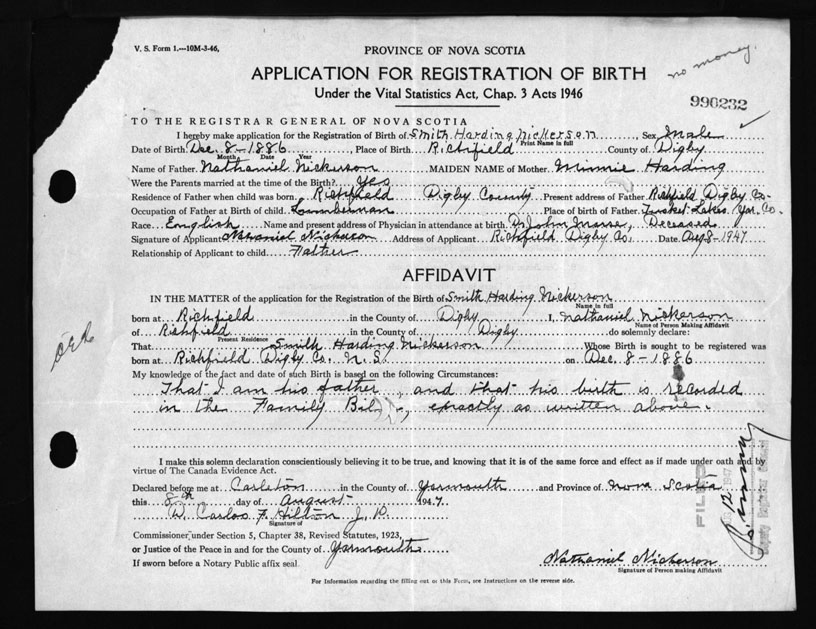 V. S. Form 1.---10M-3-46,
PROVINCE OF NOVA SCOTIA
no money.
APPLICATION FOR REGISTRATION OF BIRTH
Under the Vital Statistics Act, Chap. 3 Acts 1946
990232
TO THE REGISTRAR GENERAL OF NOVA SCOTIA
I hereby make application for the Registration of Birth of Smith Harding Nickerson Sex Male
Print Name in full
Date of Birth Dec. 8 - 1886, Place of Birth Richfield County of Digby
Month Date Year
Name of Father Nathaniel Nickerson MAIDEN NAME of Mother Minnie Harding
Were the Parents married at the time of the Birth? Yes
Residence of Father when child was born, Richfield Digby County Present address of Father Richfield Digby Co.
Occupation of Father at Birth of child. Lumberman Place of birth of Father, Tusket Lakes Yar. Co.
Race English Name and present address of Physician in attendance at birth Dr John Deceased
Signature of Applicant Nathaniel Nickerson Address of Applicant Richfield Digby Co. Date Aug 8 - 1947
Relationship of Applicant to child Father
AFFIDAVIT
IN THE MATTER of the application for the Registration of the Birth of Smith Harding Nickerson
Name in full
born at Richfield in the County of Digby I, Nathaniel Nickerson
Name of Person Making Affidavit
of Richfield in the County of Digby do solemnly declare:
Present Residence
That Smith Harding Nickerson Whose Birth is sought to be registered was
born at Richfield Digby Co. N. S. on Dec. 8 - 1886
My knowledge of the fact and date of such Birth is based on the following Circumstances:
That I am his father, and that his birth is recorded
in the Family exactly as written above.
I make this solemn declaration conscientiously believing it to be true, and knowing that it is of the same force and effect as if made under oath and by
virtue of The Canada Evidence Act.
Declared before me at Carleton in the County of Yarmouth and Province of Nova Scotia
this 8th day of August 1947
D. Carlos F. Hilton J. P.
Signature of
Commissioner under Section 5, Chapter 38, Revised Statutes, 1923,
or Justice of the Peace in and for the County of Yarmouth
If sworn before a Notary Public affix seal
Nathaniel Nickerson
Signature of Person making Affidavit
For Information regarding the filling out of this Form, see Instructions on the reverse side.
FILED